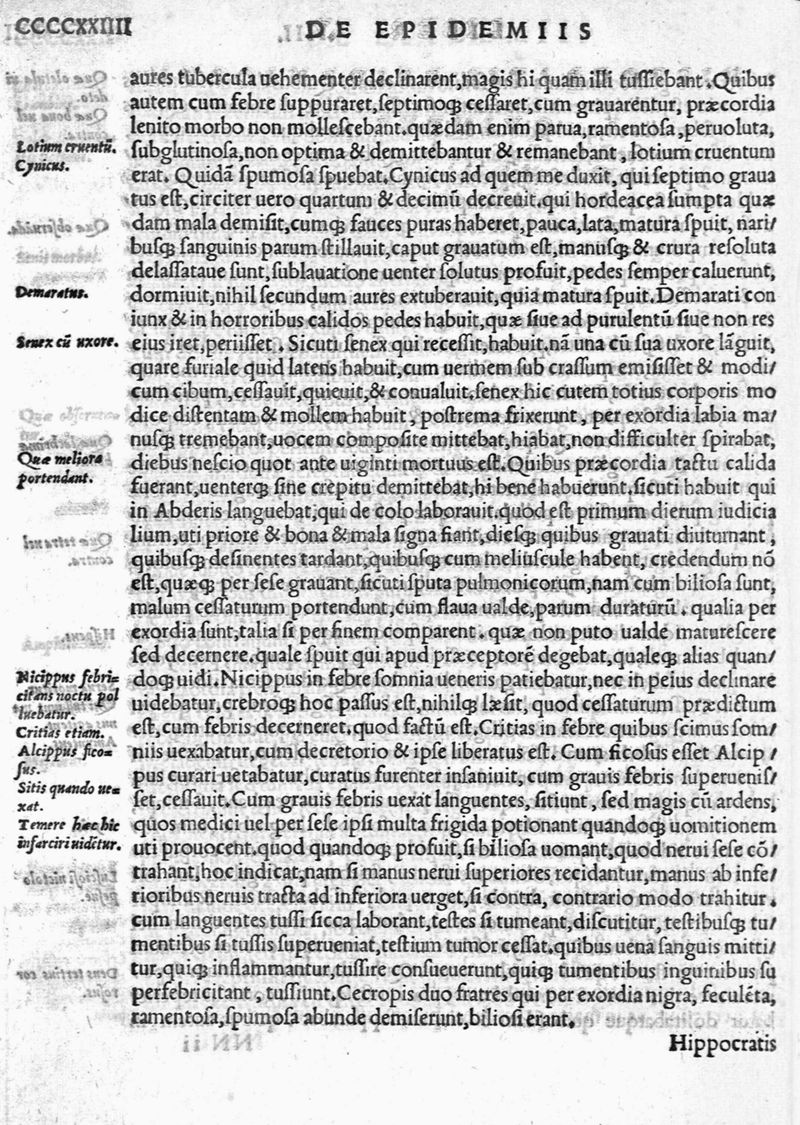 CCCCXXIIII
DE EPIDEMIIS
aures tubercula uehementer declinarent,magis hi quam illi tussiebant.Quibus
autem cum febre suppuraret,septimoqꝫ cessaret,cum grauarentur, præcordia
lenito morbo non mollescebant.quædam enim parua,ramentosa,peruoluta,
Lotium cruentū.
subglutinosa,non optima & demittebantur & remanebant, lotium cruentum
Cynicus.
erat. Quidā spumosa spuebat.Cynicus ad quem me duxit, qui septimo graua
tus est,circiter uero quartum & decimū decreuit.qui hordeacea sumpta quæ
dam mala demisit,cumqꝫ fauces puras haberet,pauca,lata,matura spuit, nari/
busqꝫ sanguinis parum stillauit,caput grauatum est,manusqꝫ & crura resoluta
delassataue sunt,sublauatione uenter solutus profuit,pedes semper caluerunt,
Demaratus.
dormiuit,nihil secundum aures extuberauit,quia matura spuit.Demarati con
iunx & in horroribus calidos pedes habuit,quæ siue ad purulentū siue non res
Senex cū uxore.
eius iret,periisset. Sicuti senex qui recessit,habuit.nā una cū sua uxore lāguit,
quare furiale quid latens habuit,cum uermem sub crassum emisisset & modi/
cum cibum,cessauit,quieuit,& conualuit.senex hic cutem totius corporis mo
dice distentam & mollem habuit, postrema frixerunt, per exordia labia ma/
nusqꝫ tremebant,uocem composite mittebat,hiabat,non difficulter spirabat,
Quæ meliora
diebus nescio quot ante uiginti mortuus est.Quibus præcordia tactu calida
portendant.
fuerant,uenterqꝫ sine crepitu demittebat,hi bene habuerunt.sicuti habuit qui
in Abderis languebat,qui de colo laborauit.quod est primum dierum iudicia
lium,uti priore & bona & mala signa fiant,diesqꝫ quibus grauati diuturnant,
quibusqꝫ desinentes tardant,quibusqꝫ cum meliuscule habent, credendum nō
est,quæqꝫ per sese grauant,sicuti sputa pulmonicorum,nam cum biliosa sunt,
malum cessaturum portendunt,cum flaua ualde,parum duraturū. qualia per
exordia sunt,talia si per finem comparent. quæ non puto ualde maturescere
sed decernere.quale spuit qui apud præceptorē degebat,qualeqꝫ alias quan/
Nicippus febri=
doqꝫ uidi.Nicippus in febre somnia ueneris patiebatur,nec in peius declinare
citans noctu pol
luebatur.
uidebatur,crebroqꝫ hoc passus est,nihilqꝫ læsit, quod cessaturum prædictum
Critias etiam.
est,cum febris decerneret.quod factū est.Critias in febre quibus scimus som/
Alcippus fico=
niis uexabatur,cum decretorio & ipse liberatus est. Cum ficosus esset Alcip /
sus.
pus curari uetabatur,curatus furenter insaniuit, cum grauis febris superuenis/
Sitis quando ue=
xat.
set,cessauit.Cum grauis febris uexat languentes, sitiunt, sed magis cū ardens,
Temere hæc hic
quos medici uel per sese ipsi multa frigida potionant quandoqꝫ uomitionem
infarciri uidētur.
uti prouocent.quod quandoqꝫ profuit,si biliosa uomant,quod nerui sese cō/
trahant,hoc indicat,nam si manus nerui superiores recidantur,manus ab infe/
rioribus neruis tracta ad inferiora uerget,si contra, contrario modo trahitur.
cum languentes tussi sicca laborant,testes si tumeant,discutitur, testibusqꝫ tu/
mentibus si tussis superueniat,testium tumor cessat.quibus uena sanguis mitti/
tur,quiqꝫ inflammantur,tussire consueuerunt,quiqꝫ tumentibus inguinibus su
perfebricitant, tussiunt.Cecropis duo fratres qui per exordia nigra, feculēta,
ramentosa,spumosa abunde demiserunt,biliosi erant.
Hippocratis